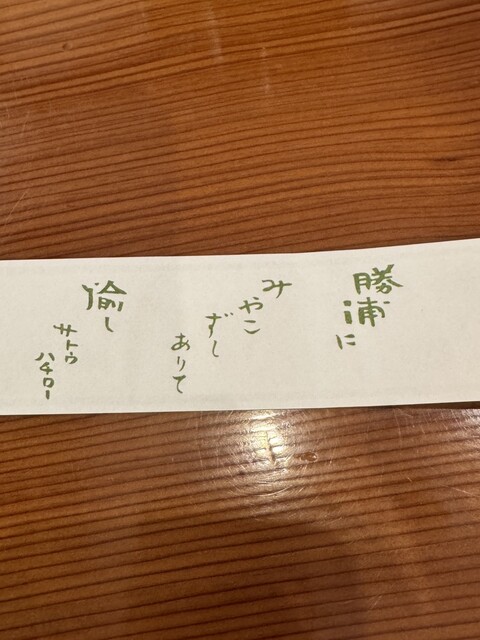 勝浦に
みやこ
ずし
ありて
愉し
サトウ
ハチロー